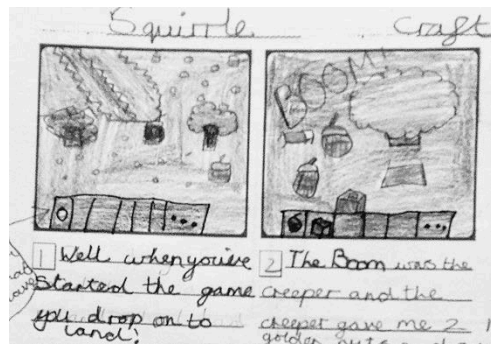 Squirrle Craft
BOOM!
1 Well when you've
started the game
you drop on to
land!
2 The Boom was the
creeper and the
creeper gave me 2
golden nuts